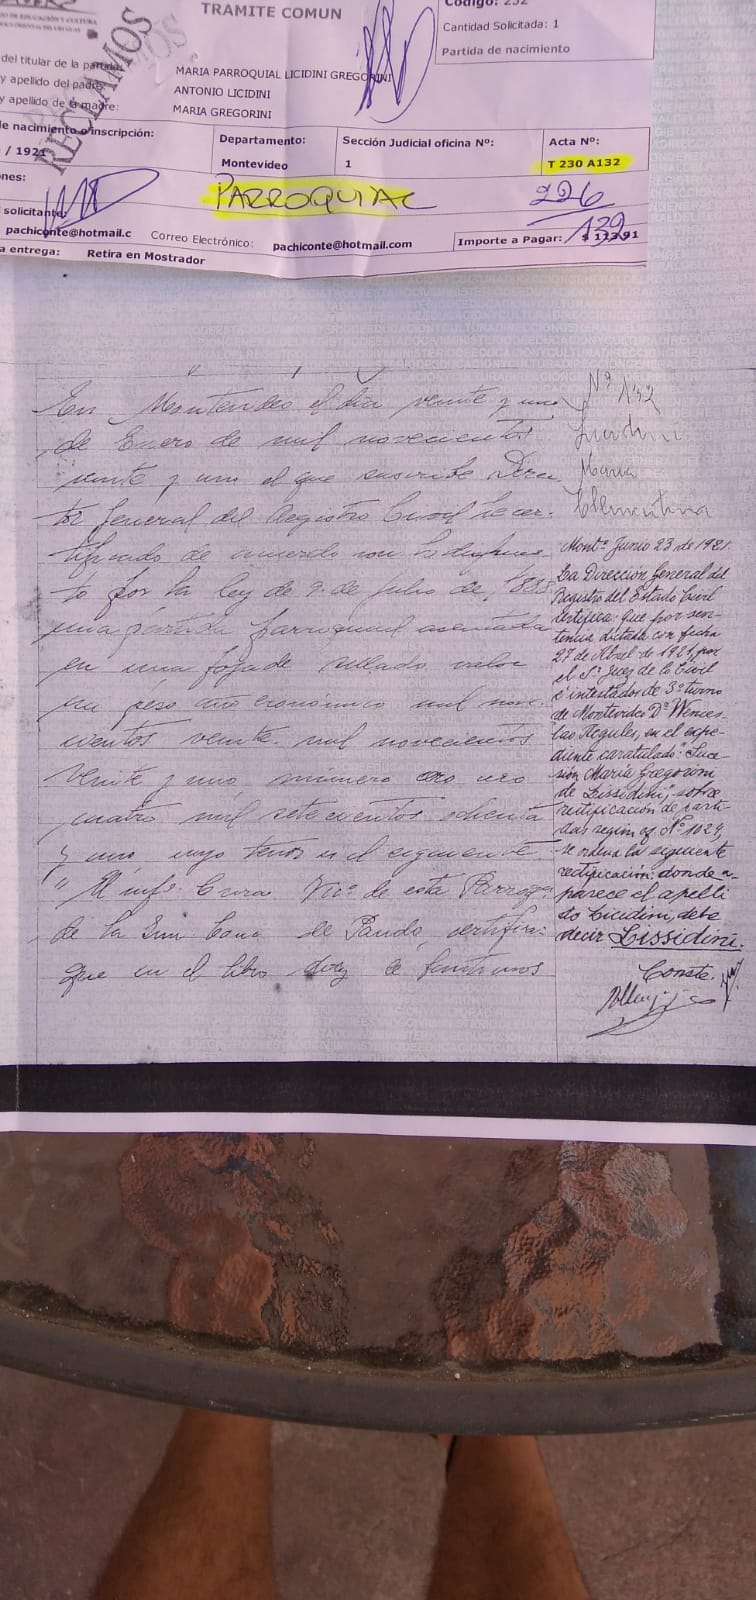 TRAMITE COMUN
Código: 252
Cantidad Solicitada: 1
Partida de nacimiento
RECLAMOS
del titular de la partida:
MARIA PARROQUIAL LICIDINI GREGORINI
y apellido del padre:
ANTONIO LICIDINI
y apellido de la madre:
MARIA GREGORINI
de nacimiento o inscripción:
/ 1921
Departamento:
Montevideo
Sección Judicial oficina Nº:
1
Acta Nº:
T 230 A132
nes:
PARROQUIAL
226
132
solicitante:
pachiconte@hotmail.c
Correo Electrónico: pachiconte@hotmail.com
Importe a Pagar: $ 91
a entrega: Retira en Mostrador
En Montevideo el día veinte y uno
de Enero de mil novecientos
veinte y uno el que suscribe Direc
tor General del Registro Civil
tificado de acuerdo con
to por la ley de 9 de Julio de
una partida parroquial asentada
en una foja de sellado valor
un peso año económico mil nove
cientos veinte mil novecientos
veinte y uno, número
cuatro mil setecientos ochenta
y uno cuyo tenor es el siguiente
" El Cura Vic.º de esta Parroq.
de la Inm. Conc. de Pando, certifica:
Que en el libro diez de bautismos
Nº 132
Licidini
Maria
Clementina
Montº Junio 23 de 1921.
La Dirección General del
Registro del Estado Civil
certifica: que por sen-
tencia dictada con fecha
27 de Abril de 1921, por
el Sr. Juez de lo Civil
é intestados de 3er turno
de Montevideo Dr. Wences-
lao Regules, en el expe-
diente caratulado: "Suce-
sión María Gregorini
de Lissidini", sobre
rectificación de parti-
das según of. Nº 1024,
se ordena la siguiente
rectificación: donde a-
parece el apelli
do Licidini, debe
decir Lissidini.
Conste.